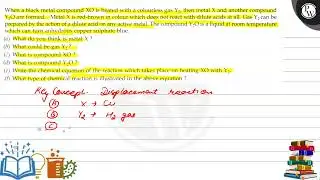 When a black metal compound XO is heated with a colourless gas Y₂, then metal X and another compound
Y₂O are formed. Metal X is red-brown in colour which does not react with dilute acids at all. Gas Y₂ can
be prepared by the action of a dilute acid on any active metal. The compound Y₂O is a liquid at room temperature
which can turn anhydrous copper sulphate blue.
(a) What do you think is metal X ?
(b) What could be gas Y₂ ?
(c) What is compound XO ?
(d) What is compound Y₂O ?
(e) Write the chemical equation of the reaction which takes place on heating XO with Y₂.
(f) What type of chemical reaction is illustrated in the above equation ?
Key Concept. Displacement reaction
(A) X → Cu
(B) Y₂ → H₂ gas
(C)